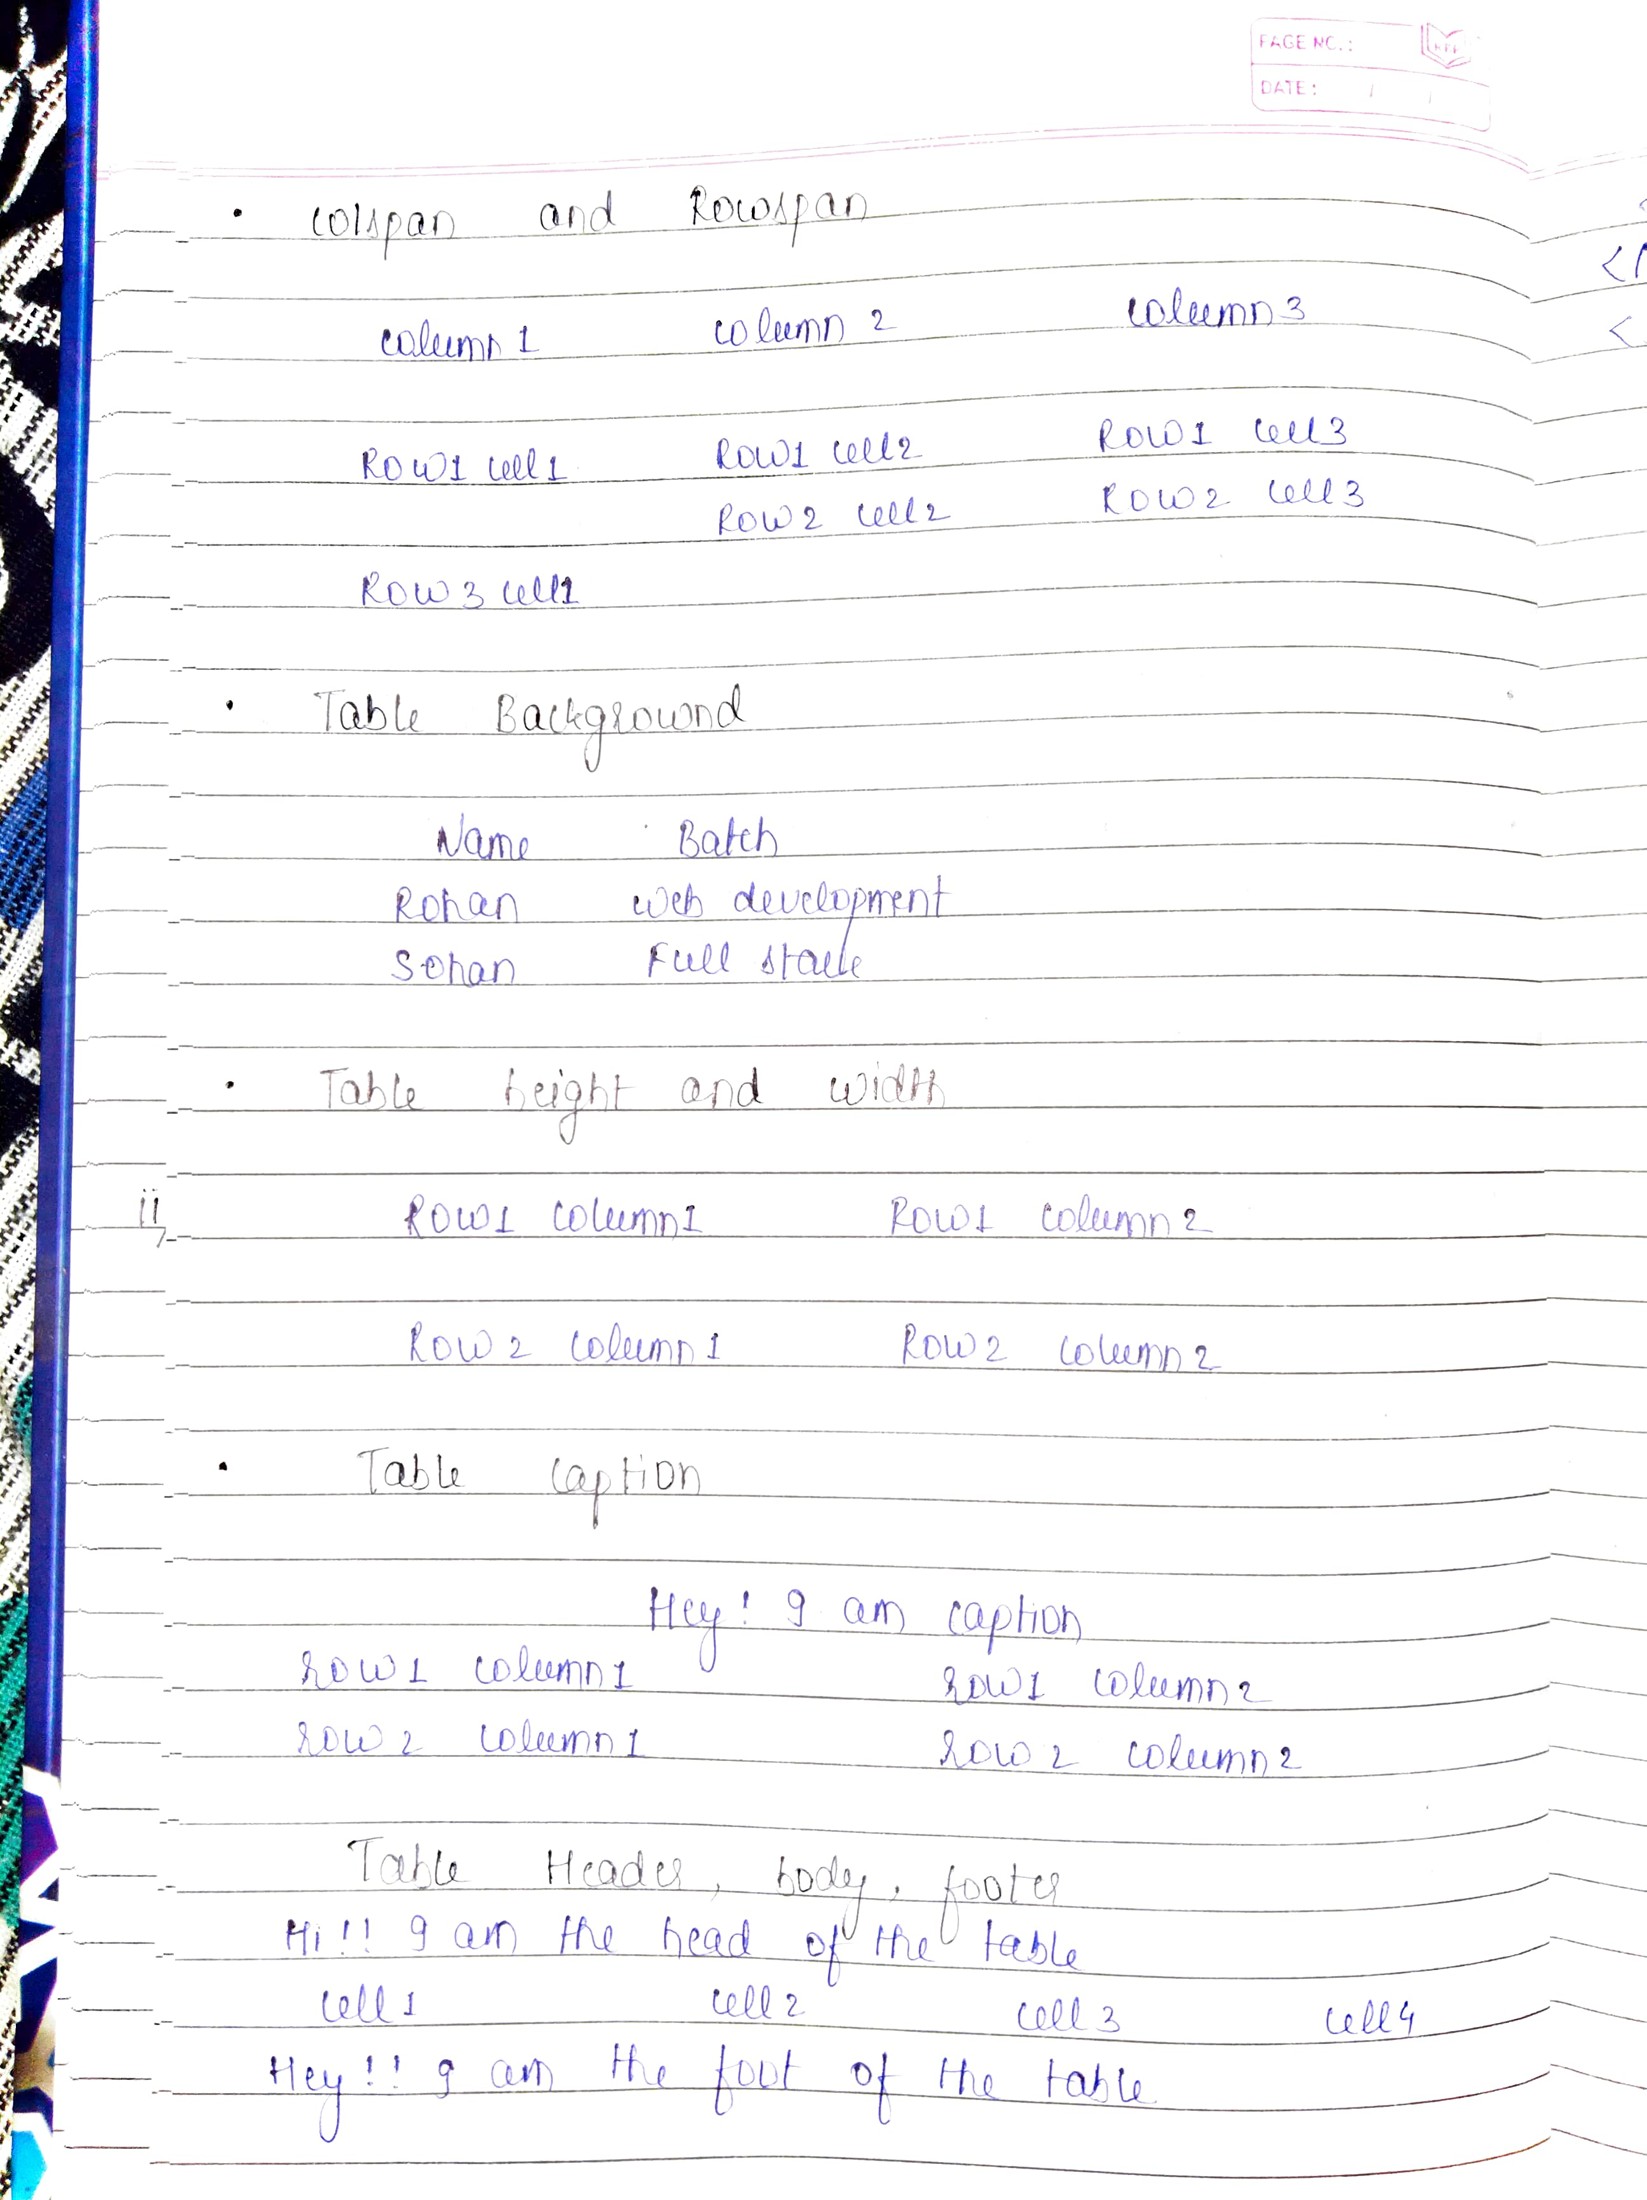 PAGE NO.:
DATE: / /
• Colspan and Rowspan
column 1 column 2 column 3
Row1 cell1 Row1 cell2 Row1 cell3
Row2 cell2 Row2 cell3
Row 3 cell1
• Table Background
Name Batch
Rohan web development
Sohan Full stack
• Table height and width
ii Row1 column1 Row1 column 2
Row 2 column 1 Row 2 column 2
• Table caption
Hey! I am caption
Row 1 column 1 Row1 column 2
Row 2 column 1 Row 2 column 2
Table Header, body, footer
Hi!! I am the head of the table
cell 1 cell 2 cell 3 cell 4
Hey!! I am the foot of the table